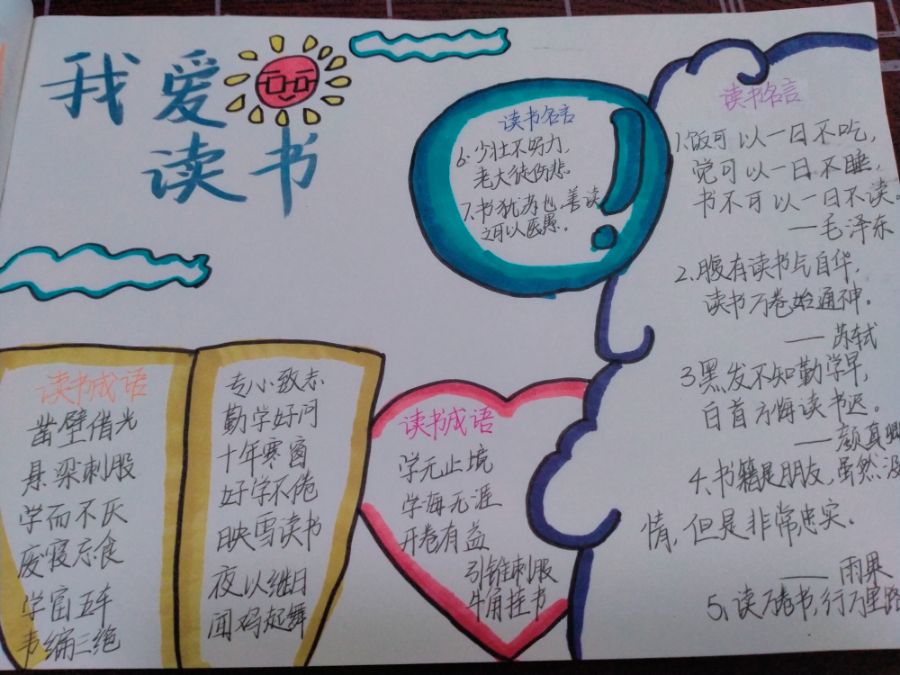 我爱
读书
读书名言
6、少壮不努力,
老大徒伤悲
7、书犹药也,善读
之可以医愚。
读书名言
1、饭可以一日不吃,
觉可以一日不睡,
书不可以一日不读。
——毛泽东
2、腹有读书气自华,
读书万卷始通神。
——苏轼
3、黑发不知勤学早,
白首方悔读书迟。
——颜真卿
4、书籍是朋友,虽然没
情,但是非常忠实。
——雨果
5、读万卷书,行万里路
读书成语
凿壁借光
悬梁刺股
学而不厌
废寝忘食
学富五车
韦编三绝
专心致志
勤学好问
十年寒窗
好学不倦
映雪读书
夜以继日
闻鸡起舞
读书成语
学无止境
学海无涯
开卷有益
引锥刺股
牛角挂书